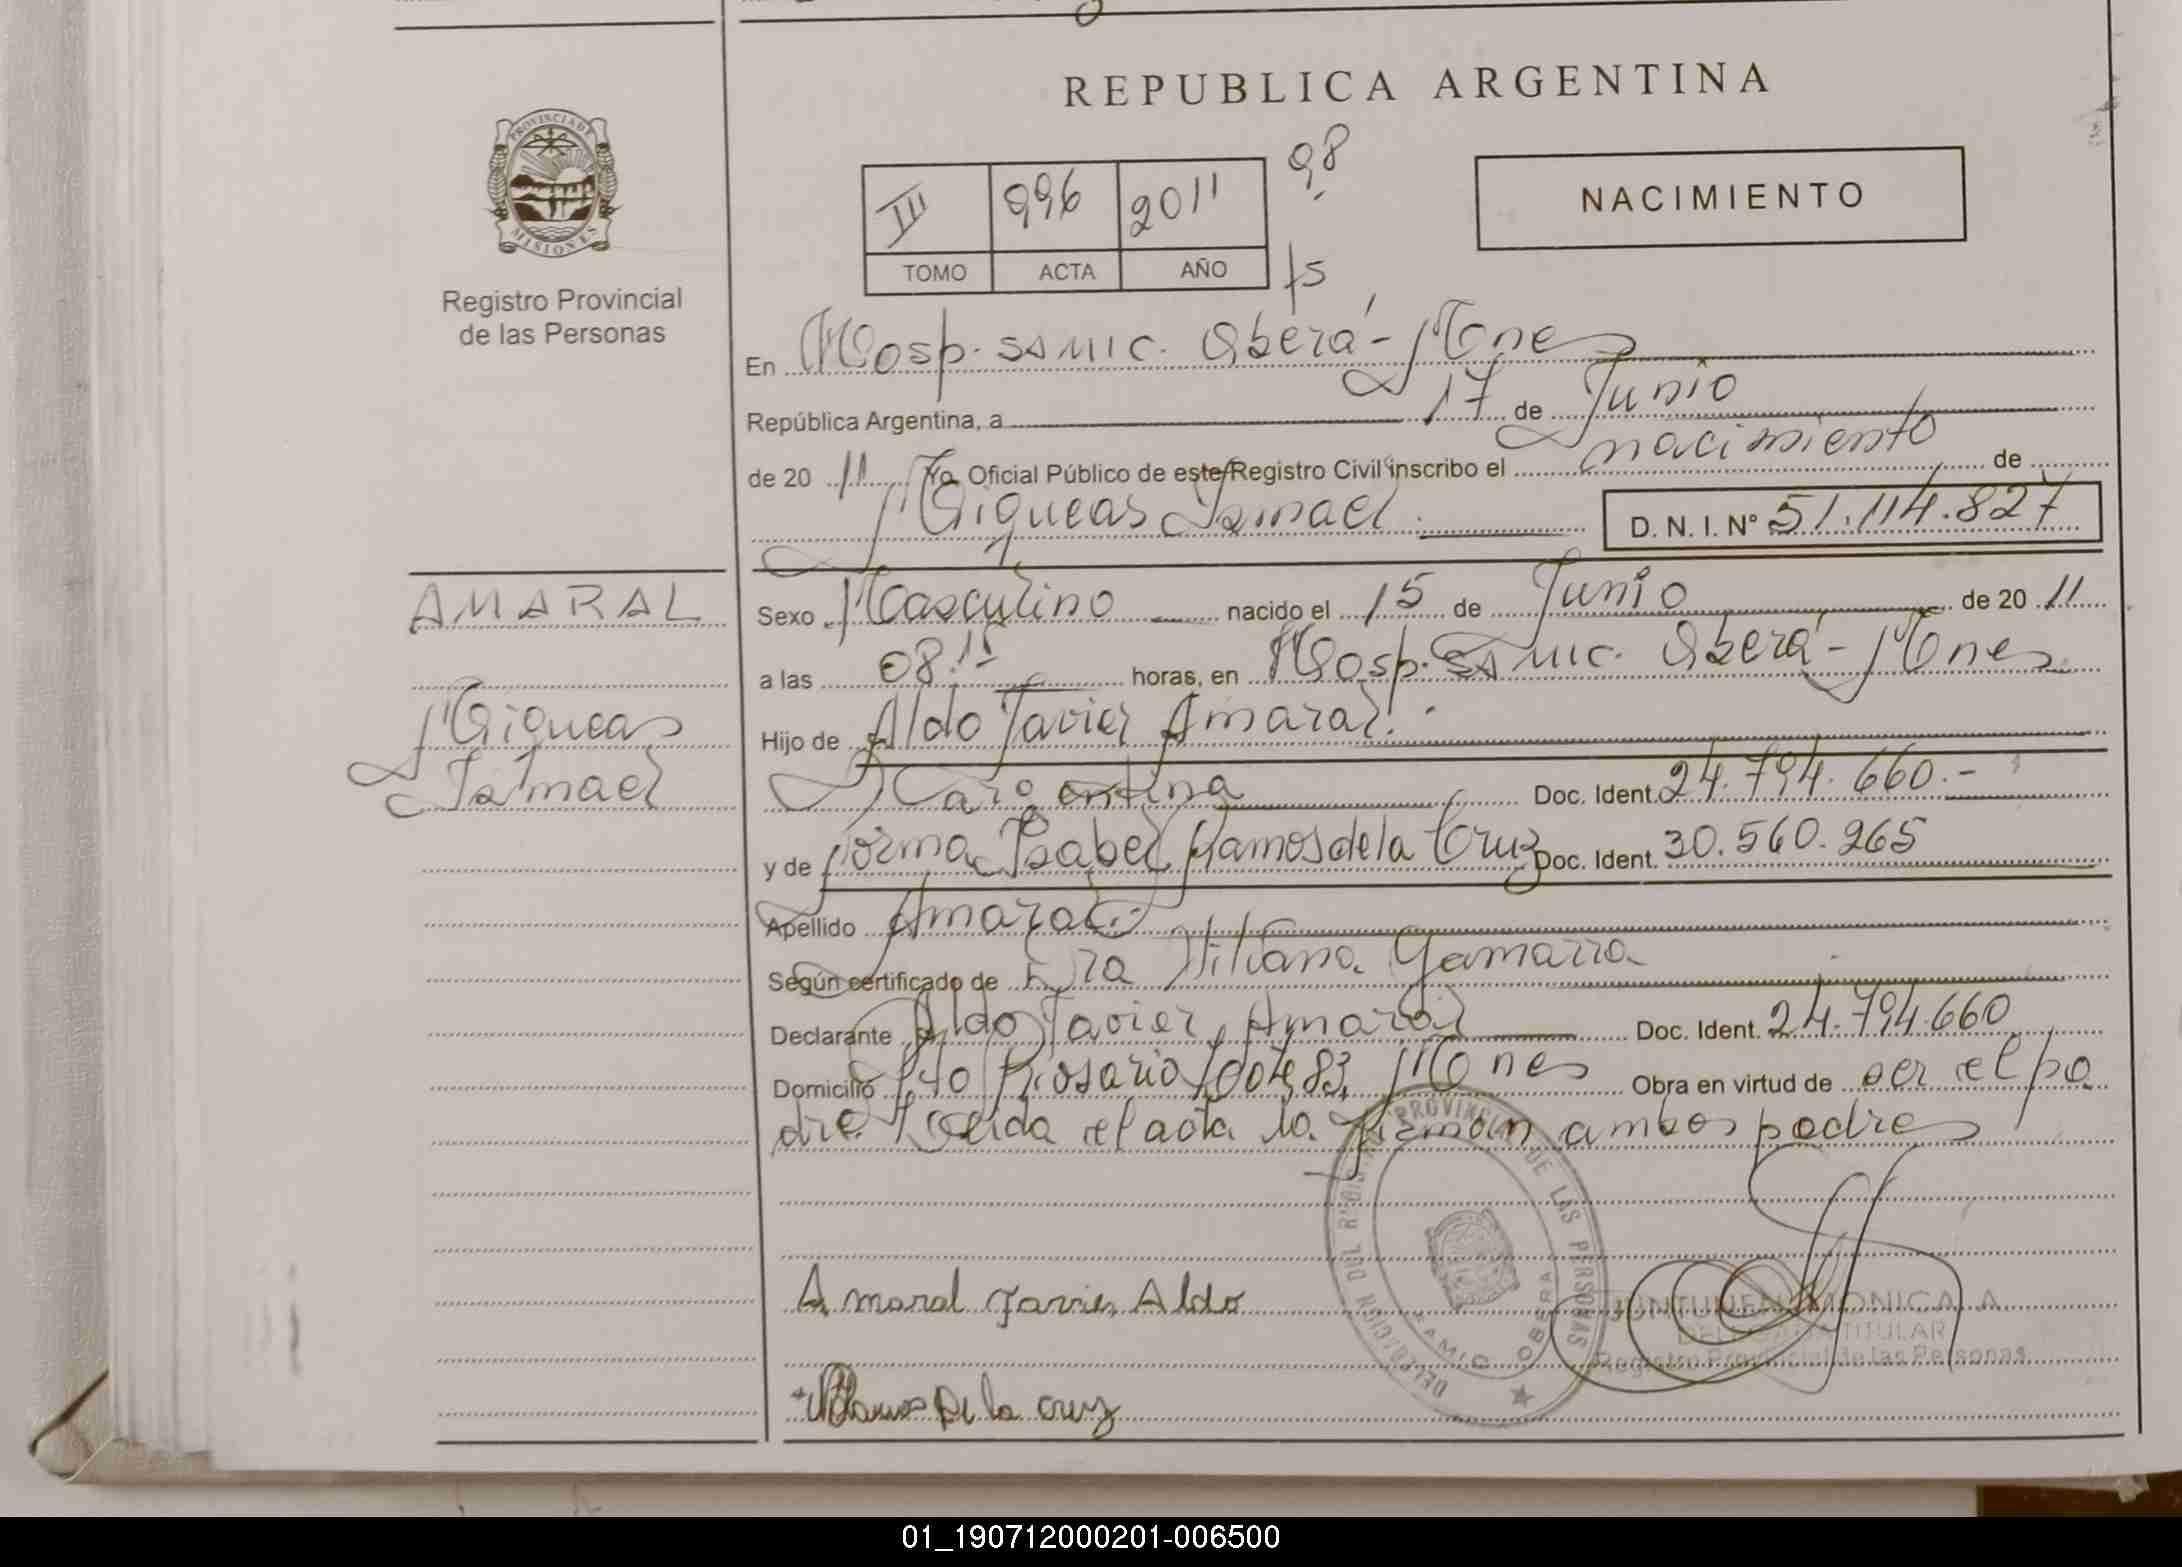 REPUBLICA ARGENTINA
PROVINCIA DE MISIONES
Registro Provincial
de las Personas
III 996 2011 98
TOMO ACTA AÑO 15
NACIMIENTO
En Hosp. SAMIC. Oberá - Mnes
República Argentina, a 17 de Junio
de 20 11 Yo Oficial Público de este Registro Civil inscribo el nacimiento de
Miqueas Ismael D. N. I. N° 51.114.827
AMARAL
Miqueas
Ismael
Sexo Masculino nacido el 15 de Junio de 20 11
a las 08.15 horas, en Hosp. SAMIC. Oberá - Mnes
Hijo de Aldo Javier Amaral.
Argentina Doc. Ident. 24.794.660.-
y de Norma Isabel Ramos de la Cruz Doc. Ident. 30.560.265
Apellido Amaral
Según certificado de Dra Liliana Gamarra
Declarante Aldo Javier Amaral Doc. Ident. 24.794.660
Domicilio Pto Rosario lote 83, Mnes Obra en virtud de ser el pa
dre. Leida el acta la firman ambos padres
Amaral Javier Aldo
Ramos De la cruz
DELEGACION DEL REGISTRO PROVINCIAL DE LAS PERSONAS
SAMIC OBERA
JUNTUNEN MONICA A
DELEGADA TITULAR
Registro Provincial de las Personas
01_190712000201-006500